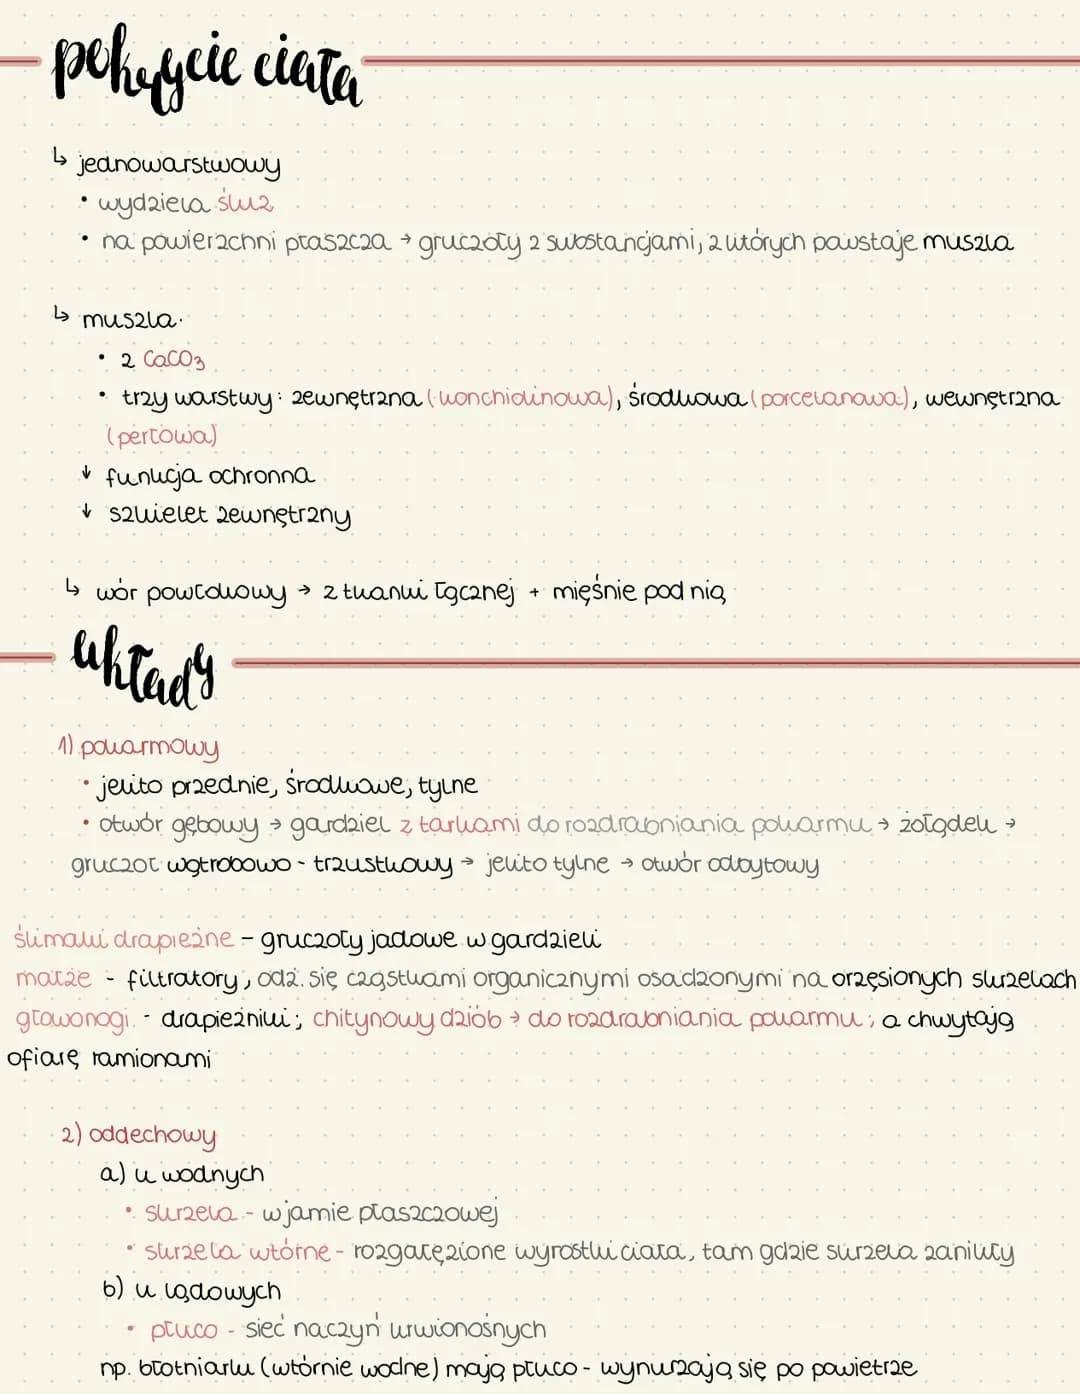 pokrycie ciała
↳ jednowarstwowy
• wydziela śluz
• na powierzchni płaszcza → gruczoły z substancjami, z których powstaje muszla
↳ muszla
• z CaCO3
• trzy warstwy: zewnętrzna (konchiolinowa), środkowa (porcelanowa), wewnętrzna
(perłowa)
↓ funkcja ochronna
↓ szkielet zewnętrzny
↳ wór powłokowy → z tkanki łącznej + mięśnie pod nią
układy
1) pokarmowy
• jelito przednie, środkowe, tylne
• otwór gębowy → gardziel z tarkami do rozdrabniania pokarmu → żołądek →
gruczoł wątrobowo - trzustkowy → jelito tylne → otwór odbytowy
ślimaki drapieżne - gruczoły jadowe w gardzieli
małże - filtratory, odż. się cząstkami organicznymi osadzonymi na orzęsionych skrzelach
głowonogi - drapieżniki; chitynowy dziób → do rozdrabniania pokarmu; a chwytają
ofiarę ramionami
2) oddechowy
a) u wodnych
• skrzela - w jamie płaszczowej
• skrzela wtórne - rozgałęzione wyrostki ciała, tam gdzie skrzela zanikły
b) u lądowych
• płuco - sieć naczyń krwionośnych
np. błotniarki (wtórnie wodne) mają płuco - wynurzają się po powietrze